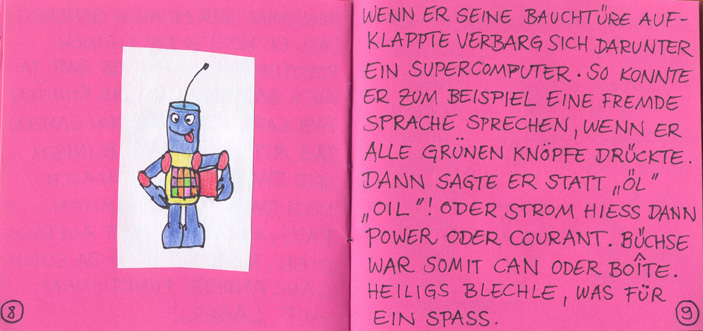 WENN ER SEINE BAUCHTÜRE AUF-
KLAPPTE VERBARG SICH DARUNTER
EIN SUPERCOMPUTER. SO KONNTE
ER ZUM BEISPIEL EINE FREMDE
SPRACHE SPRECHEN, WENN ER
ALLE GRÜNEN KNÖPFE DRÜCKTE.
DANN SAGTE ER STATT „ÖL"
„OIL"! ODER STROM HIESS DANN
POWER ODER COURANT. BÜCHSE
WAR SOMIT CAN ODER BOÎTE.
HEILIGS BLECHLE, WAS FÜR
EIN SPASS.
8
9